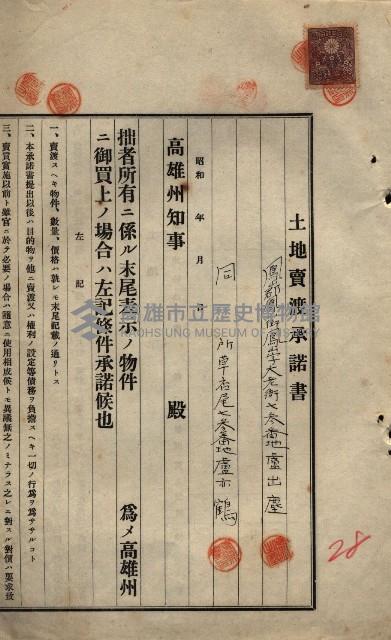 土地賣渡承諾書
鳳山郡鳳山街鳳山字大老衙七參番地 盧出塵
同 所 草店尾七參番地 盧亦鶴
昭和 年 月 日
高雄州知事 殿
爲メ高雄州
拙者所有ニ係ル末尾表示ノ物件
ニ御買上ノ場合ハ左記條件承諾候也
左記
一、賣渡スヘキ物件、數量、價格ハ孰レモ末尾記載ノ通リトス
二、本承諾書提出以後ハ目的物ヲ他ニ賣渡又ハ權利ノ設定等債務ヲ負擔スヘキ一切ノ行爲ヲ爲ササルコト
三、賣買實施以前ト雖官ニ於テ必要ノ場合ハ隨意ニ使用相成候トモ異議無之ノミナラス之レニ對スル對價ハ要求致
28
高雄市立歷史博物館
KAOHSIUNG MUSEUM OF HISTORY